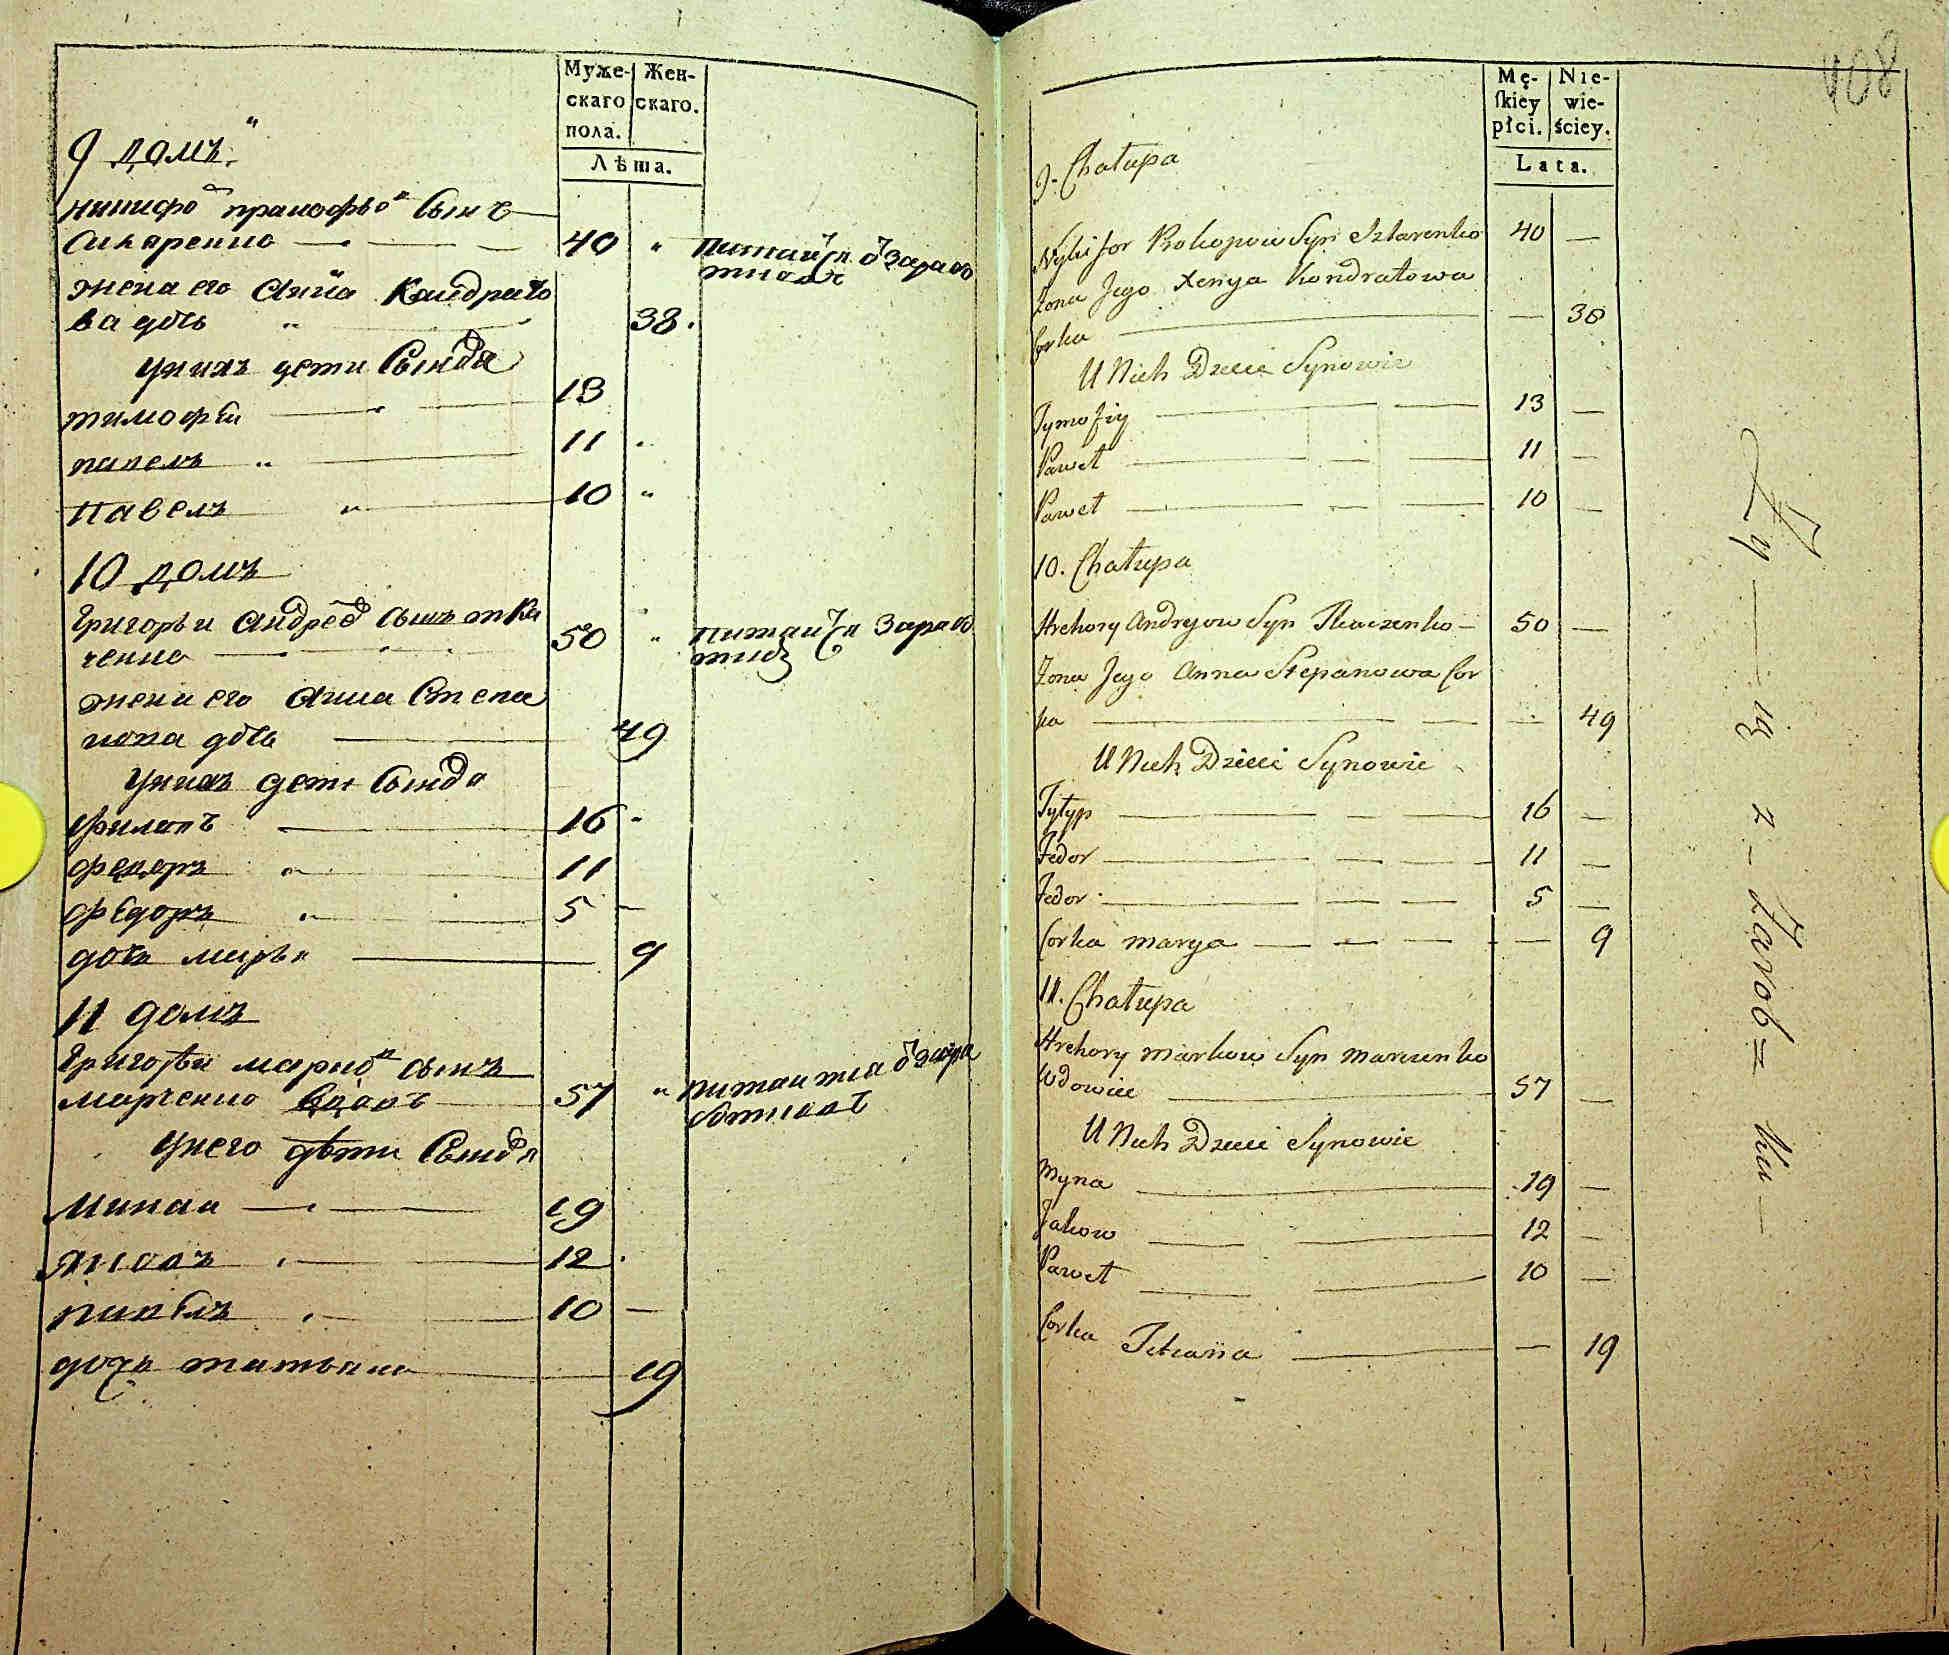 Муже-
скаго
пола.
Жен-
скаго.
Лѣта.
9 домъ
никифо прокофьв сынъ
40
питайтся ѿ зарабо
жена его Кандрато
ва дочь 38
у нихъ дети сындя
тимофеи 13
павелъ 11
павелъ 10
10 домъ
григорьи андреев сынъ тка
ченко 50 питайтся зарабо
жена его анна степа
нова дочь 49
у нихъ дети сындя
филипъ 16
федоръ 11
федоръ 5
дочь марья 9
11 домъ
григорьи марков сынъ
марченко вдовъ 57 питаитца ѿ зара
ботков
у него дѣти сындя
минаи 19
яковъ 12
павелъ 10
дочь татьяна 19
408
Mę-
skiey
płci.
Nie-
wie-
ściey.
Lata.
9. Chałupa
Nykifor Prokopow Syn 40 —
Żona Jego Xenya Kondratowa
Corka — 38
U Nich Dzieci Synowie
Tymofiy 13 —
Paweł 11 —
Paweł 10 —
10. Chałupa
Hrehory Andryow Syn Tkaczenko — 50 —
Żona Jego Anna Stepanowa Cor
ka — 49
U Nich Dzieci Synowie
16 —
Fedor 11 —
Fedor 5 —
Corka Marya — 9
11. Chałupa
Hrehory Markow Syn Marczenko
Wdowiec 57 —
U Nich Dzieci Synowie
Myna 19 —
Jakow 12 —
Paweł 10 —
Corka Tetiana — 19
Ży — — ią z — Zarob= ku —